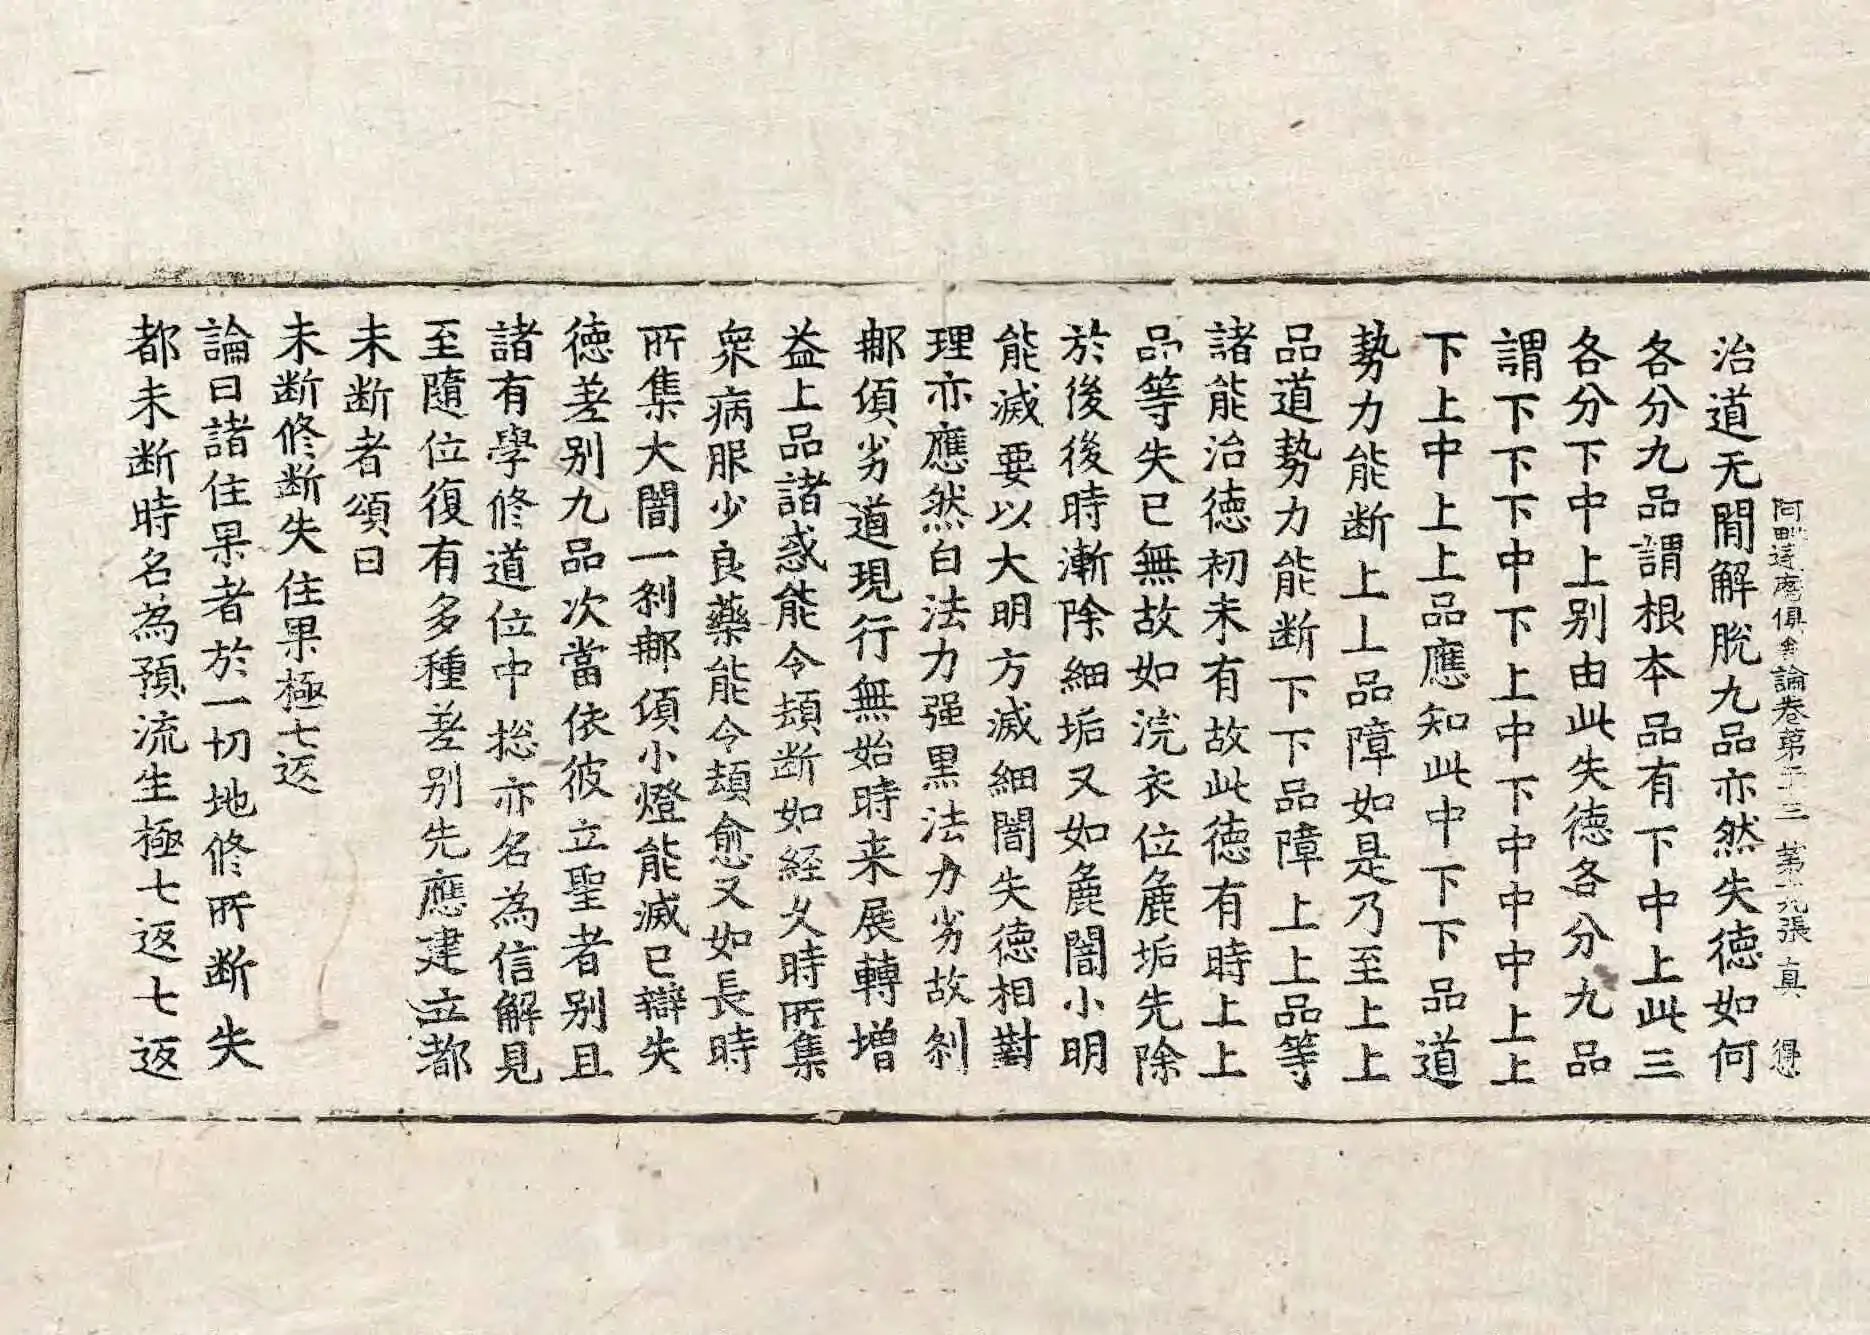 阿毗達磨俱舍論卷第二十三 第九張 真 得
治道无間解脫九品亦然失德如何
各分九品謂根本品有下中上此三
各分下中上别由此失德各分九品
謂下下下中下上中下中中中上上
下上中上上品應知此中下下品道
勢力能断上上品障如是乃至上上
品道勢力能断下下品障上上品等
諸能治德初未有故此德有時上上
品等失已無故如浣衣位麁垢先除
於後後時漸除細垢又如麁闇小明
能滅要以大明方滅細闇失德相對
理亦應然白法力强黒法力劣故刹
那須劣道現行無始時来展轉增
益上品諸惑能令頓断如經久時所集
衆病服少良藥能令頓愈又如長時
所集大闇一刹那須小燈能滅已辯失
德差别九品次當依彼立聖者别且
諸有學修道位中捴亦名為信解見
至隨位復有多種差别先應建立都
未断者頌曰
未断修断失住果極七返
論曰諸住果者於一切地修所断失
都未断時名為預流生極七返七返